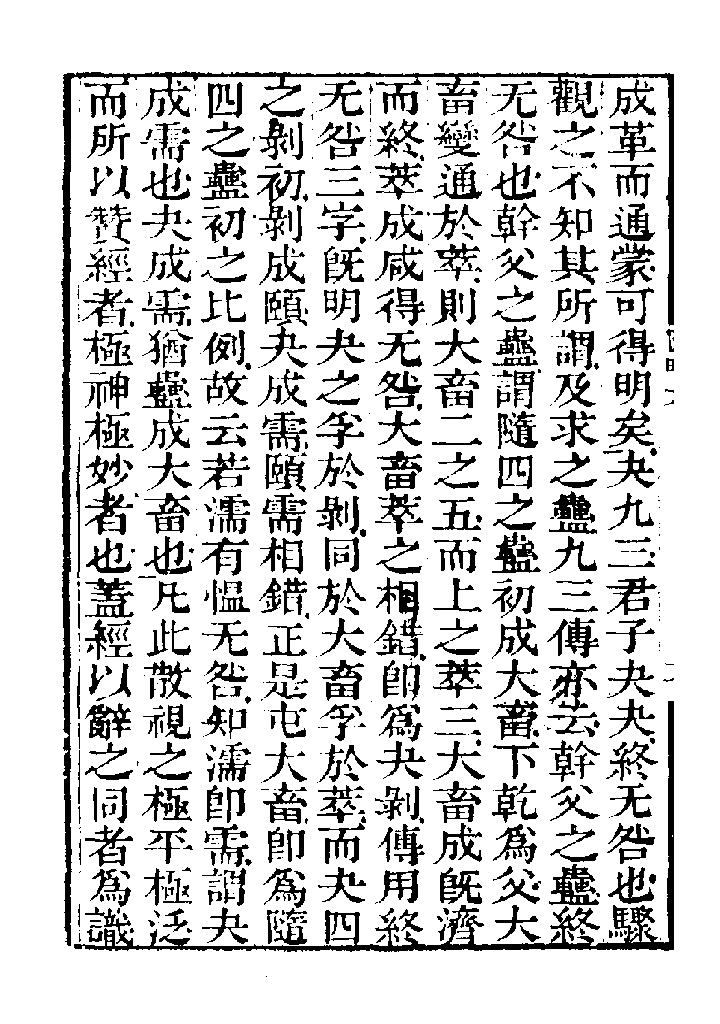 成革而通蒙可得明矣夬九三君子夬夬終无咎也驟
觀之不知其所謂及求之蠱九三傳亦云幹父之蠱終
无咎也幹父之蠱謂隨四之蠱初成大畜下乾爲父大
畜變通於萃則大畜二之五而上之萃三大畜成旣濟
而終萃成咸得无咎大畜萃之相錯卽爲夬剝傳用終
无咎三字旣明夬之孚於剝同於大畜孚於萃而夬四
之剝初剝成頤夬成需頤需相錯正是屯大畜卽爲隨
四之蠱初之比例故云若濡有愠无咎知濡卽需謂夬
成需也夬成需猶蠱成大畜也凡此散視之極平極泛
而所以贊經者極神極妙者也蓋經以辭之同者爲識